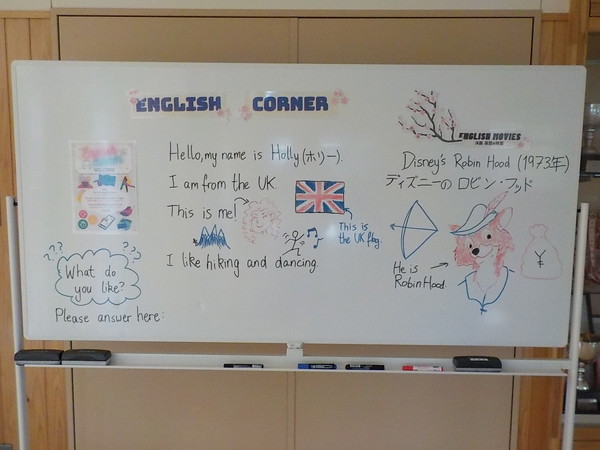 ENGLISH CORNER
ENGLISH MOVIES
Hello, my name is Holly (ホリー).
I am from the UK.
This is me!
This is
the UK flag.
I like hiking and dancing.
???
???
What do
you like?
Please answer here:
Disney's Robin Hood (1973年)
ディズニーの ロビン・フッド
He is
Robin Hood.
¥